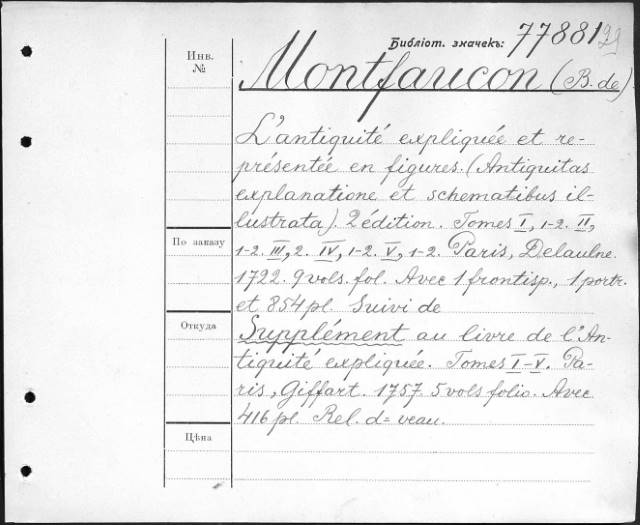 Библіот. значекъ: 77881
Инв. №
Montfaucon (B. de).
L'antiquité expliquée et re-
présentée en figures. (Antiquitas
explanatione et schematibus il-
lustrata). 2 édition. Tomes I, 1-2. II,
По заказу
1-2. III, 2. IV, 1-2. V, 1-2. Paris, Delaulne.
1722. 9 vols. fol. Avec 1 frontisp., 1 portr.
et 854 pl. Suivi de
Откуда
Supplément au livre de l'An-
tiquité expliquée. Tomes I-V. Pa-
ris, Giffart. 1757. 5 vols folio. Avec
416 pl. Rel. d= veau.
Цѣна